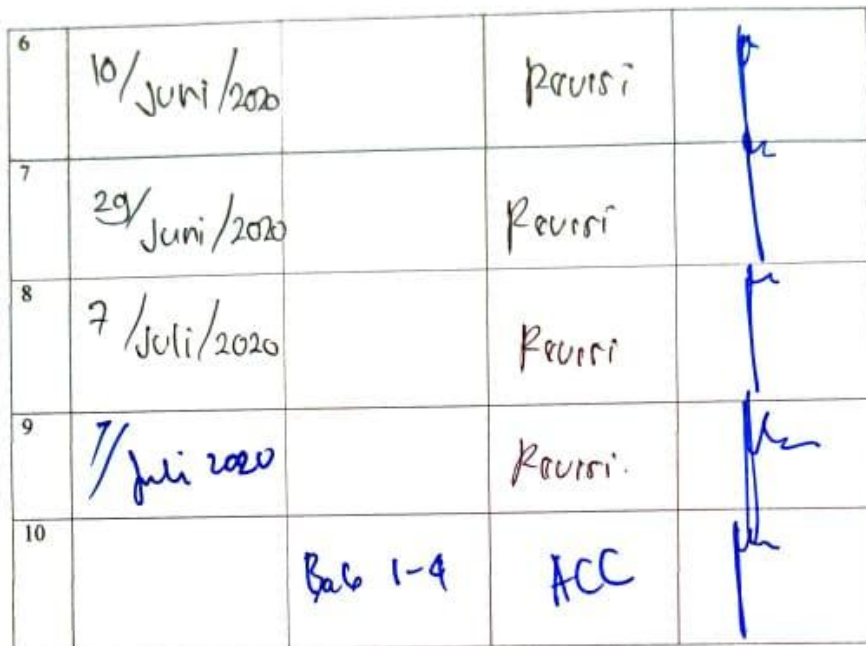 6 10/Juni/2020 Revisi
7 29/Juni/2020 Revisi
8 7/Juli/2020 Revisi
9 7/Juli 2020 Revisi.
10 Bab 1-4 ACC